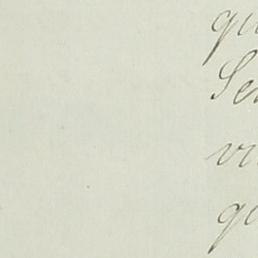 qu
Se
vi
qu